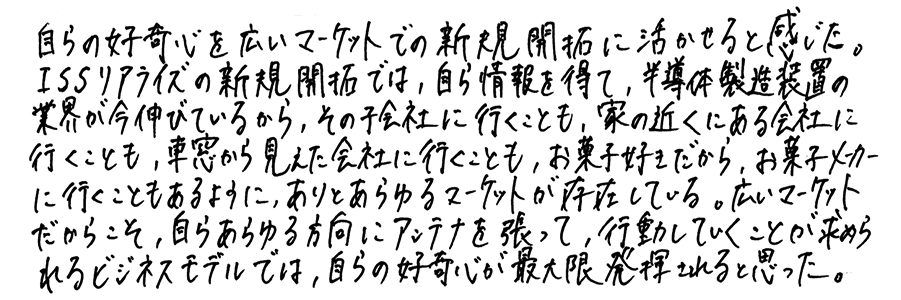 自らの好奇心を広いマーケットでの新規開拓に活かせると感じた。
ISSリアライズの新規開拓では，自ら情報を得て，半導体製造装置の
業界が今伸びているから，その子会社に行くことも，家の近くにある会社に
行くことも，車窓から見えた会社に行くことも，お菓子好きだから，お菓子メーカー
に行くこともあるように，ありとあらゆるマーケットが存在している。広いマーケット
だからこそ，自らあらゆる方向にアンテナを張って，行動していくことが求めら
れるビジネスモデルでは，自らの好奇心が最大限発揮されると思った。